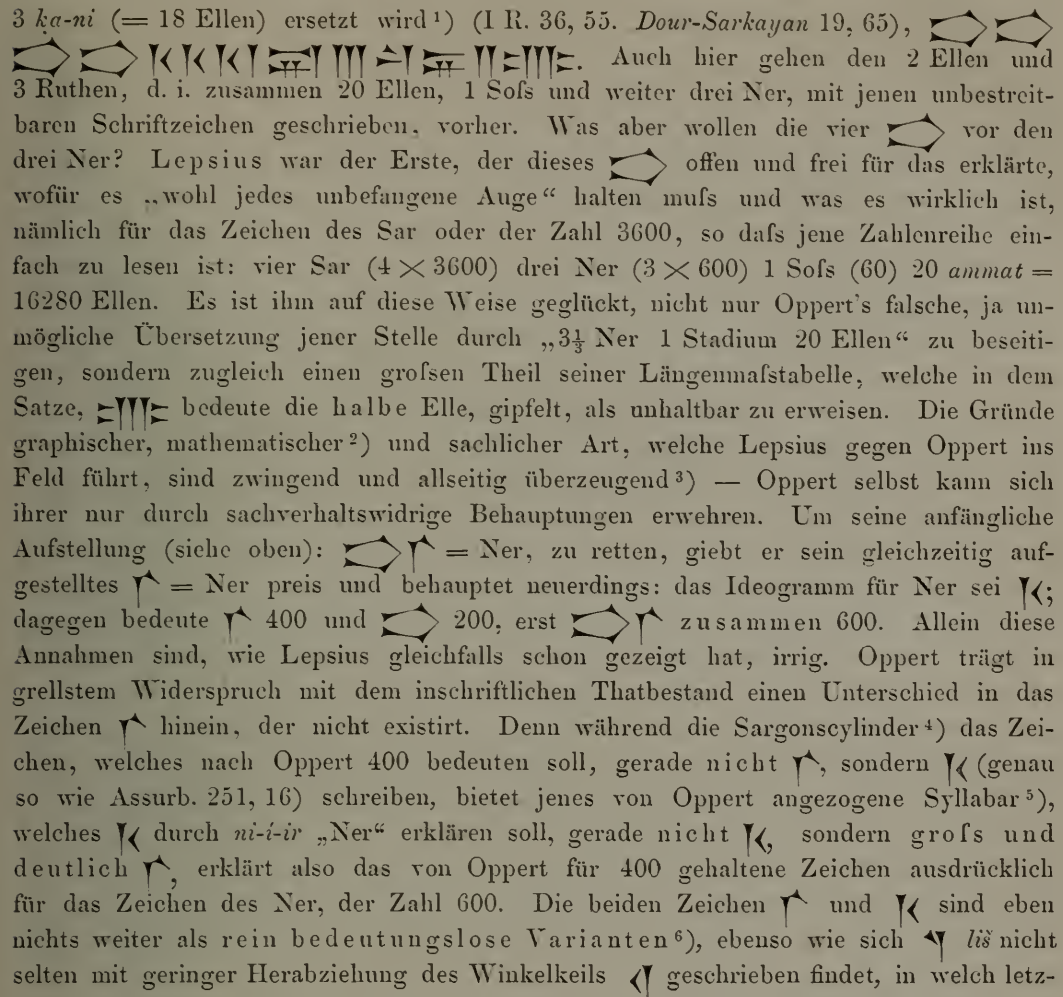 3 ḳa-ni (= 18 Ellen) ersetzt wird ¹) (I R. 36, 55. Dour-Sarkayan 19, 65),
Auch hier gehen den 2 Ellen und
3 Ruthen, d. i. zusammen 20 Ellen, 1 Soſs und weiter drei Ner, mit jenen unbestreit-
baren Schriftzeichen geschrieben, vorher. Was aber wollen die vier vor den
drei Ner? Lepsius war der Erste, der dieses offen und frei für das erklärte,
wofür es „wohl jedes unbefangene Auge“ halten muſs und was es wirklich ist,
nämlich für das Zeichen des Sar oder der Zahl 3600, so daſs jene Zahlenreihe ein-
fach zu lesen ist: vier Sar (4 × 3600) drei Ner (3 × 600) 1 Soſs (60) 20 ammat =
16280 Ellen. Es ist ihm auf diese Weise geglückt, nicht nur Oppert's falsche, ja un-
mögliche Übersetzung jener Stelle durch „3⅓ Ner 1 Stadium 20 Ellen“ zu beseiti-
gen, sondern zugleich einen groſsen Theil seiner Längenmaſstabelle, welche in dem
Satze, bedeute die halbe Elle, gipfelt, als unhaltbar zu erweisen. Die Gründe
graphischer, mathematischer ²) und sachlicher Art, welche Lepsius gegen Oppert ins
Feld führt, sind zwingend und allseitig überzeugend ³) — Oppert selbst kann sich
ihrer nur durch sachverhaltswidrige Behauptungen erwehren. Um seine anfängliche
Aufstellung (siehe oben): = Ner, zu retten, giebt er sein gleichzeitig auf-
gestelltes = Ner preis und behauptet neuerdings: das Ideogramm für Ner sei ;
dagegen bedeute 400 und 200, erst zusammen 600. Allein diese
Annahmen sind, wie Lepsius gleichfalls schon gezeigt hat, irrig. Oppert trägt in
grellstem Widerspruch mit dem inschriftlichen Thatbestand einen Unterschied in das
Zeichen hinein, der nicht existirt. Denn während die Sargonscylinder ⁴) das Zei-
chen, welches nach Oppert 400 bedeuten soll, gerade nicht , sondern (genau
so wie Assurb. 251, 16) schreiben, bietet jenes von Oppert angezogene Syllabar ⁵),
welches durch ni-i-ir „Ner“ erklären soll, gerade nicht , sondern groſs und
deutlich , erklärt also das von Oppert für 400 gehaltene Zeichen ausdrücklich
für das Zeichen des Ner, der Zahl 600. Die beiden Zeichen und sind eben
nichts weiter als rein bedeutungslose Varianten ⁶), ebenso wie sich liš nicht
selten mit geringer Herabziehung des Winkelkeils geschrieben findet, in welch letz-